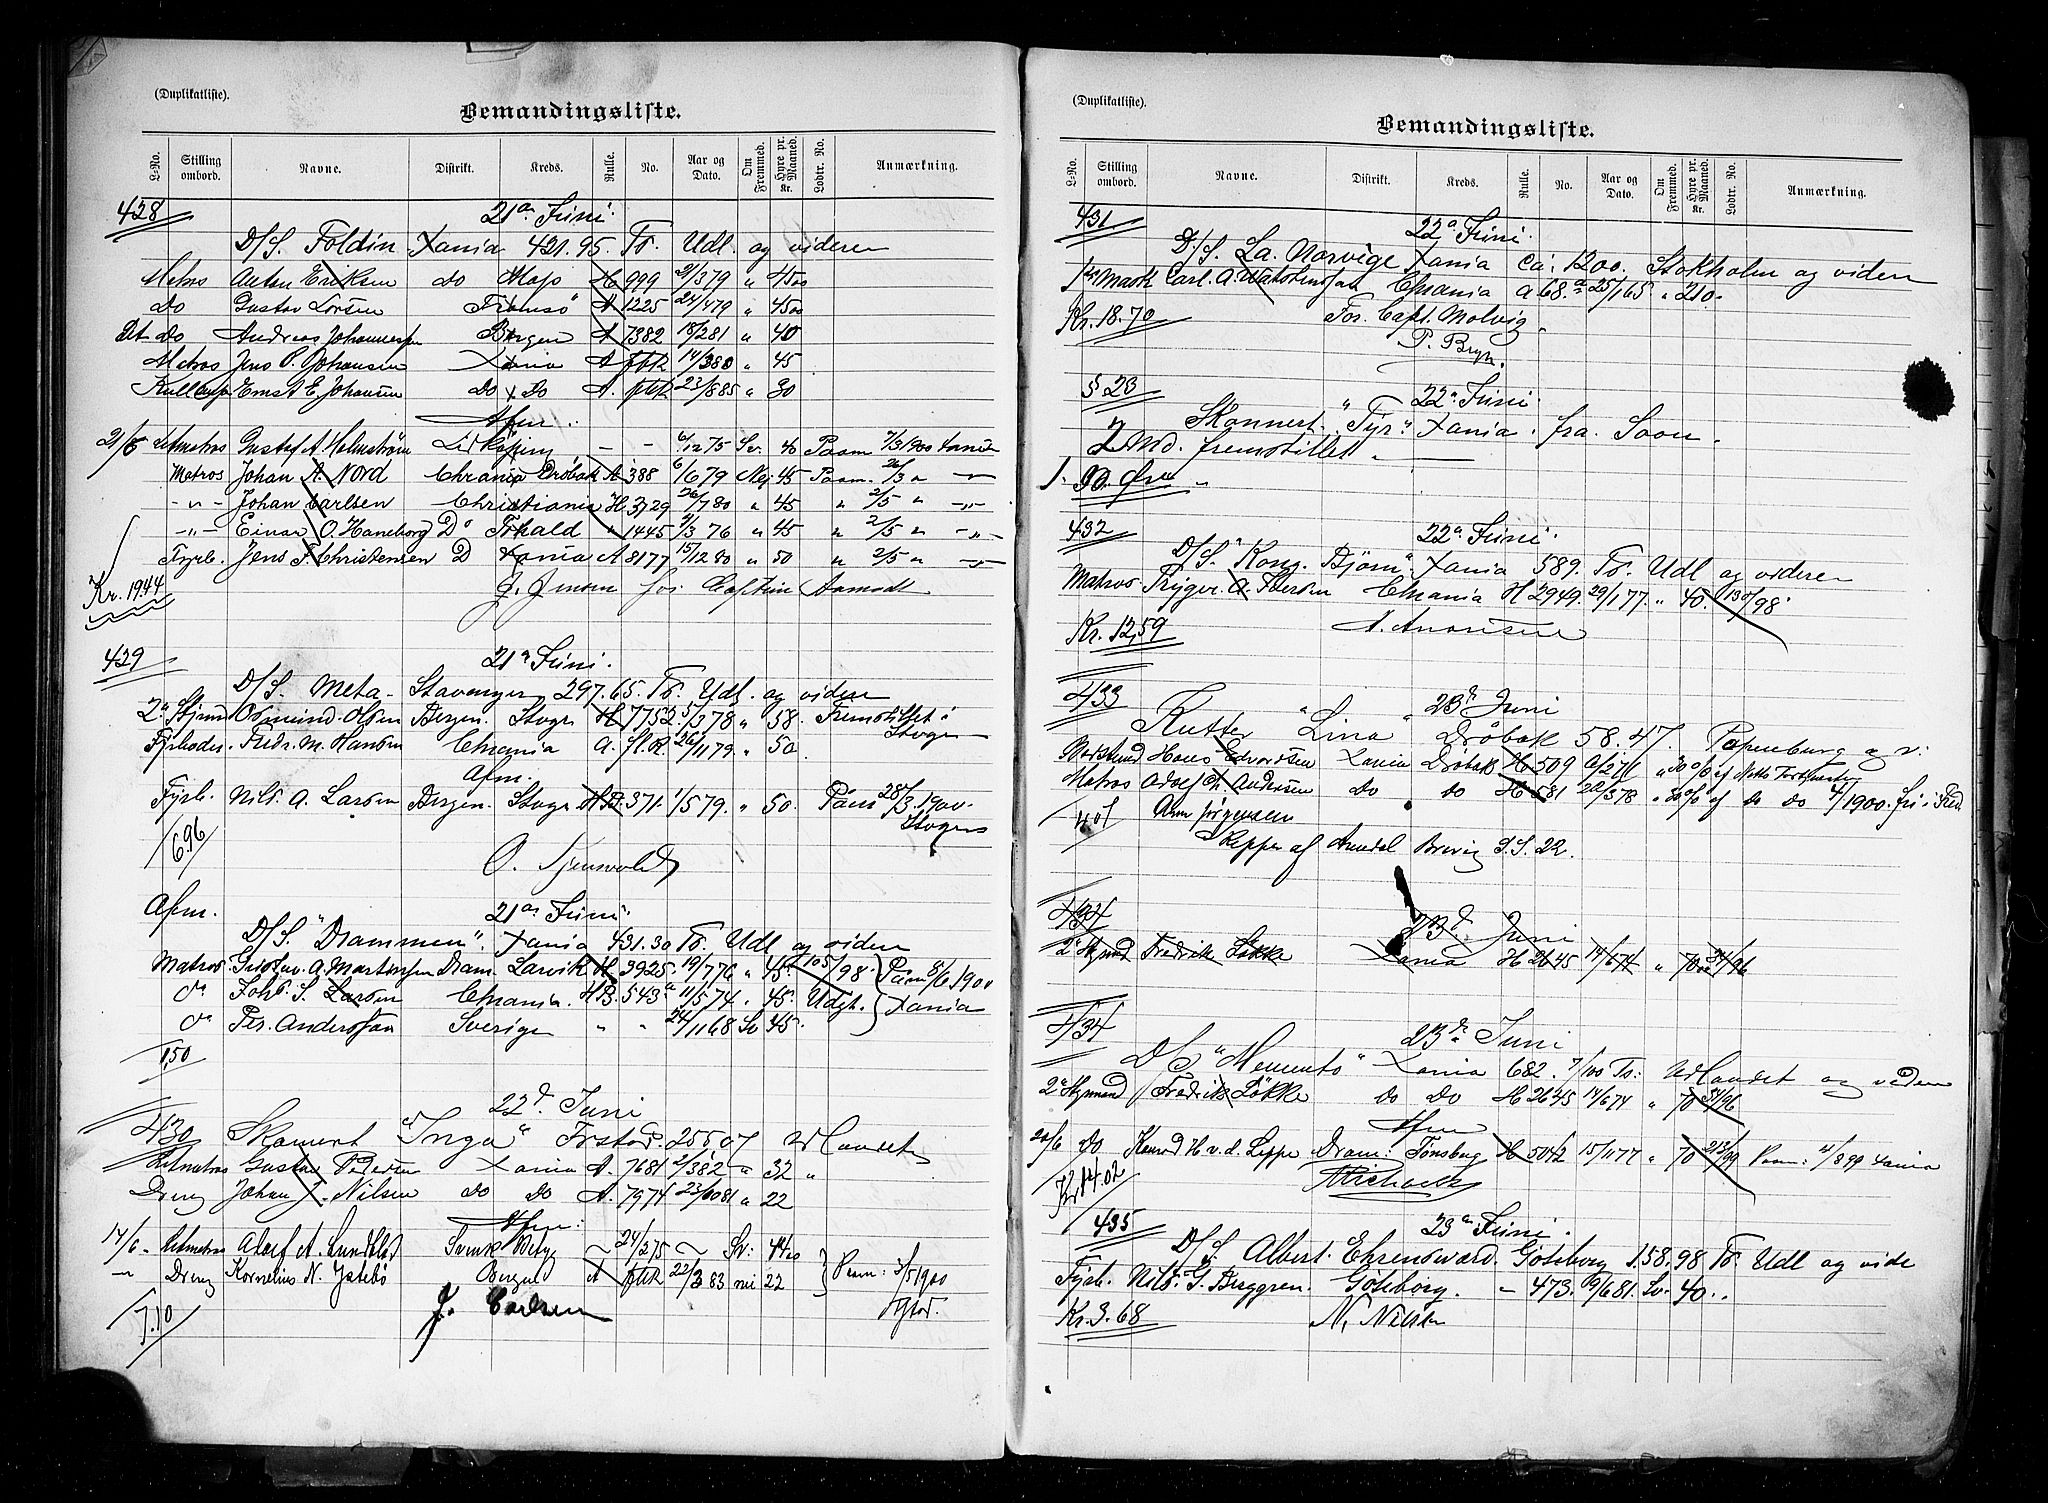 (Duplikatliste).
Bemandingsliste.
L-No. Stilling ombord. Navne. Distrikt. Kreds. Rulle. No. Aar og Dato. Om Fremmed. Hyre pr. Maaned. Kr. Lodtr. No. Anmærkning.
428 21de Juni.
D/S. Foldin Xania 421.95. Ts. Udl. og videre
Matros Anton Eriksen do H 999 2/3 79 " 4500
do Gustav Larsen Tromsö A 1225 24/4 79 " 4500
Let. do Andreas Johannessen Bergen A 7382 18/2 81 " 40
Matros Jens P. Johansen Xania A ftk 14/3 80 " 45
Kullemp Ernst E. Johansen do Do A. ftk 23/8 85 " 30
Afm.
21/6 Letmatros Gustaf A. Holmström Lidköping - - 6/12 75 Sv. 40 Paam 7/3 1900 Xania
Matros Johan A. Nord Chrania Dröbak A 388 6/6 79 Nej 45 Paam. 26/3 " -"-
-"- Johan Carlsen Christiania H 3729 26/7 80 " 45 " 2/5 " -"-
-"- Einar O. Haneborg Do Frhald " 1445 4/3 76 " 45 " 2/5 " -"-
Fyrb. Jens F. Christensen D Xania A 8177 15/12 80 " 50 " 2/5 " -"-
Kr. 19.44 J. Jensen for Captein Aamodt
429 21de Juni.
D/S. Meta - Stavanger 297.65. Ts. Udl. og videre
2den Styrmd Osmund Olsen Bergen. Stvgr H 7752 5/3 78 " 58. Fremstillet i Stvgr
Fyrböder. Fredr. M. Hansen Chrania A. fl.R. 26/11 79 " 50.
Afm.
Fyrb. Nils A. Larsen Bergen. Stvgr H.B. 371. 1/5 79. " 50. Paam 28/3 1900. Stvgr
6.96
O. Tjensvold
Afm. 21de Juni.
D/S. "Drammen". Xania 431.30 Ts. Udl. og videre
Matros Gustav. A. Martinsen Dram. Larvik H 3925. 19/7 76 " 45. 105/98 Paam 8/6 1900
do Johs. S. Larsen Chrania. H.B. 543a 11/5 74. " 45. Udgt. Xania
do Per. Andersson Sverige " " 24/11 68 Sv 45.
1.50
22d. Juni
430 Skonnert "Inga" Frstad. 255,07 Udlandet
Letmatros Gustav Pedersen Xania A. 7681 2/3 82 " 32 "
Dreng Johan J. Nilsen do do A. 7974 23/10 81 " 22
Afm:
14/6 - Letmatros Alarf A. Lundblad Svensk Bety 24/2 75 Sv: 4400
-"- Dreng Kornelius N. Ystebö Bergen A ftk 22/3 83 nei 22 Paam: 3/5 1900
7.10 J. Carlsen Frstad.
(Duplikatliste).
Bemandingsliste.
L-No. Stilling ombord. Navne. Distrikt. Kreds. Rulle. No. Aar og Dato. Om Fremmed. Hyre pr. Maaned. Kr. Lodtr. No. Anmærkning.
431 22de Juni.
D/S. La Norvige Xania Ca: 1200. Stokholm og videre
Carl. A. Chrania A 68.a 25/1 65 " 210.
Kr. 18.70 For. Capt. Molvig.
P. Bryn.
§ 23 22de Juni.
Skonnert. "Tyr" Xania. fra. Soon.
2 Md. fremstillet.
90. Öre
432 22de Juni.
D/S. "Kong. Bjørn". Xania 589. Ts. Udl og videre
Matros Trygve. A. Iversen Chrania H 2949. 29/1 77. " 40. 130/98.
Kr. 12,59 A. Anonsen
433 23d Juni
Kutter "Lina" Dröbak 58.47. Papenburg o. v:
Bedstmd Hans Edvardsen Xania Dröbak H 509 " 30 % af Netto Fortjeneste
Matros Adolf Ch. Andersen do do H 581 22/3 78 " 30 % af do do 4/1900. fri i Fred.
4.01 Ann Jörgensen
Skipper af Arendal Brevig S.S. 22.
434 23d. Juni
2d Stymand Fredrik Løkke Xania H 2645 14/6 74 " 70 24/96
434 23de Juni
D/S "Memento" Xania 682. 7/100 Ts: Udlandet og videre
2d Stymand Fredrik Løkke do do H 2645 14/6 74 " 70 24/96
Afm
20/6 do Konrad H v. d. Lippe Dram. Tønsberg H 5042 15/11 77 " 70 213/99 Paam: 4/8 99 Xania
Kr 14.02
435 23de Juni.
D/S. Albert. Ehrensward. Göteborg 158,98 Ts. Udl og vide
Fyrb. Nils. G. Berggren. Göteborg. - 473. 19/6 81. Sv. 40..
Kr. 3.68 N. Nilsen